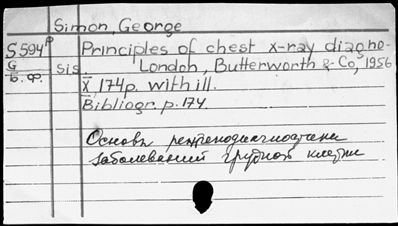 Simon, George
S594p Principles of chest x-ray diagno-
G sis London, Butterworth & Co, 1956
б. ф. X, 174p. with ill.
Bibliogr. p. 174.
Основы рентгенодиагностики
заболеваний грудной клетки